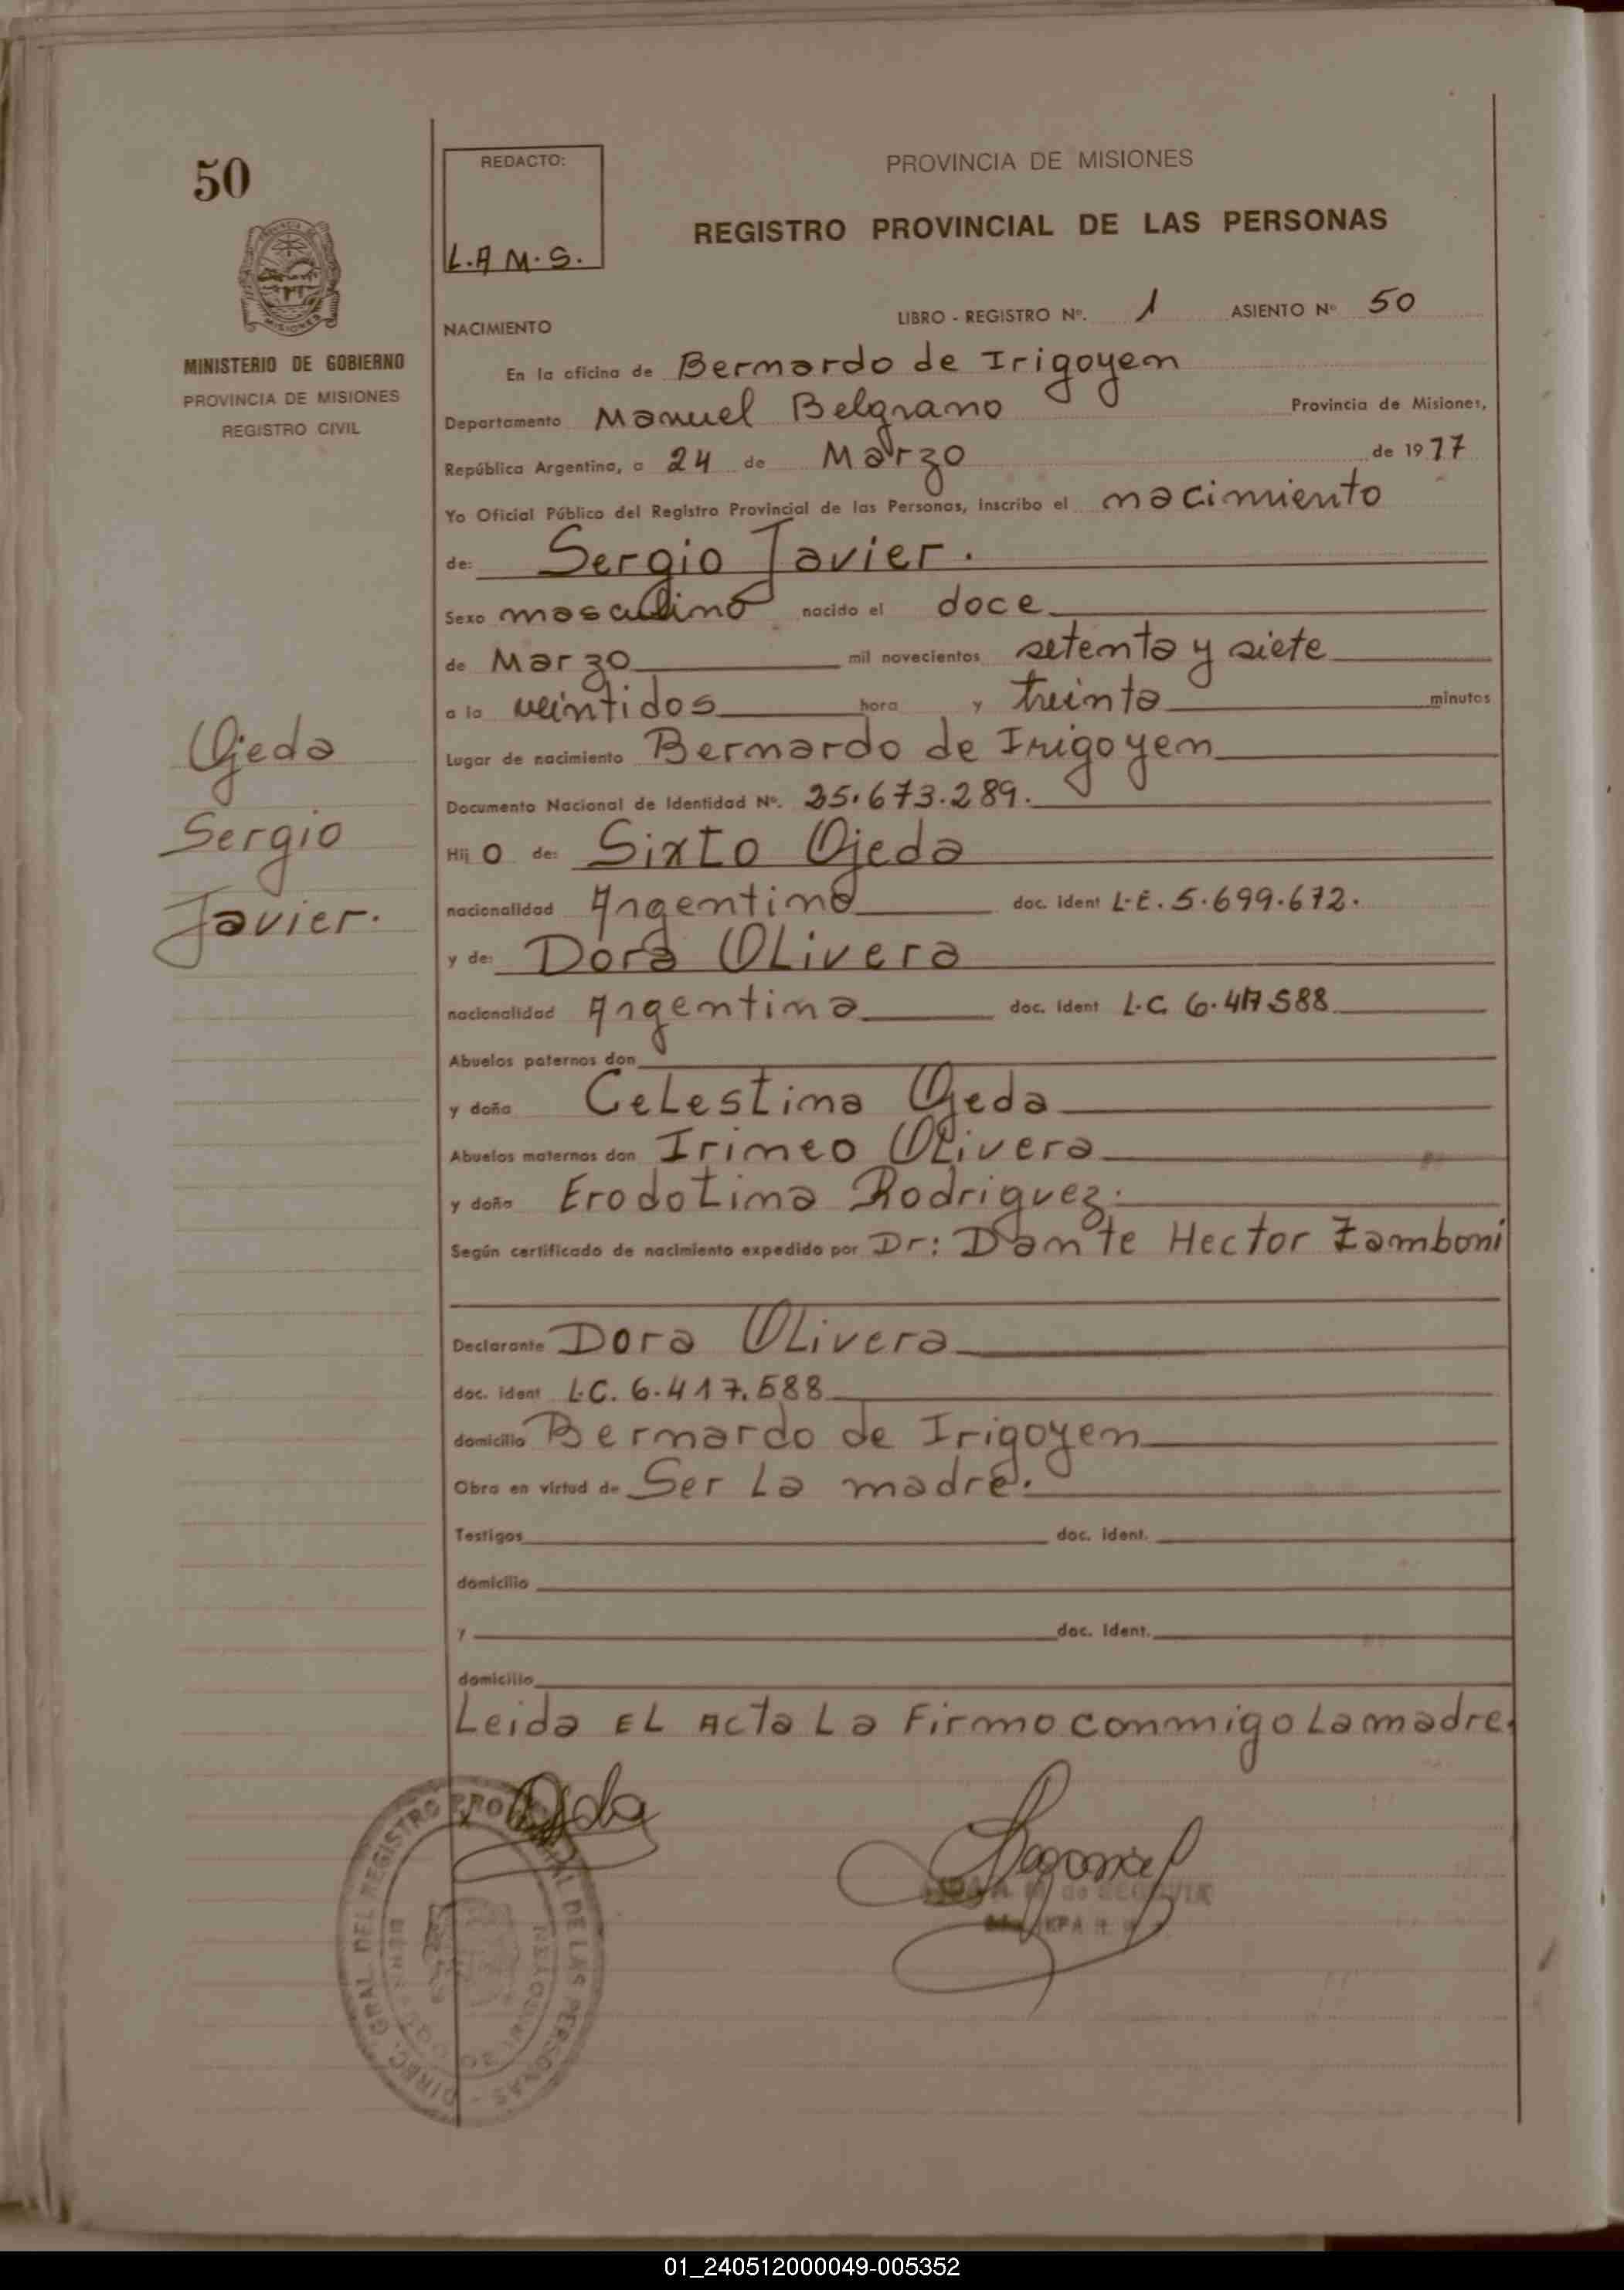 50
REDACTO:
L.A M. S.
PROVINCIA DE MISIONES
REGISTRO PROVINCIAL DE LAS PERSONAS
MISIONES
MINISTERIO DE GOBIERNO
PROVINCIA DE MISIONES
REGISTRO CIVIL
NACIMIENTO
LIBRO - REGISTRO Nº. 1 ASIENTO Nº 50
En la oficina de Bernardo de Irigoyen
Departamento Manuel Belgrano Provincia de Misiones,
República Argentina, a 24 de Marzo de 1977
Yo Oficial Público del Registro Provincial de las Personas, inscribo el nacimiento
de: Sergio Javier.
Sexo masculino nacido el doce
de Marzo mil novecientos setenta y siete
a la veintidos hora y treinta minutos
Lugar de nacimiento Bernardo de Irigoyen
Documento Nacional de Identidad Nº. 25.673.289.
Hij o de: Sixto Ojeda
nacionalidad Argentina doc. ident L.E. 5.699.672.
y de: Dora Olivera
nacionalidad Argentina doc. ident L.C 6.417588
Abuelos paternos don
y doña Celestina Ojeda
Abuelos maternos don Irineo Olivera
y doña Erodotina Rodriguez.
Según certificado de nacimiento expedido por Dr: Dante Hector Zamboni
Declarante Dora Olivera
doc. ident L.C. 6.417.588
domicilio Bernardo de Irigoyen
Obra en virtud de Ser La madre.
Testigos doc. ident.
domicilio
y doc. ident.
domicilio
Leida EL Acta La Firmo conmigo La madre.
Ojeda
Sergio
Javier.
DIREC. GRAL. DEL REGISTRO PROVINCIAL DE LAS PERSONAS
01_240512000049-005352